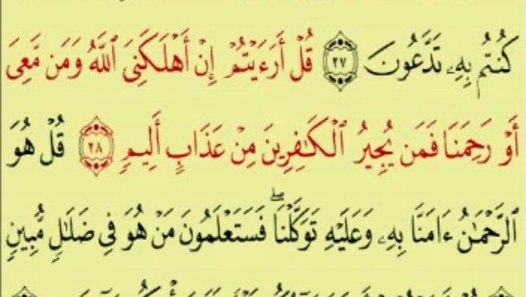 كُنتُم بِهِۦ تَدَّعُونَ ٢٧ قُلۡ أَرَءَيۡتُمۡ إِنۡ أَهۡلَكَنِيَ ٱللَّهُ وَمَن مَّعِيَ
أَوۡ رَحِمَنَا فَمَن يُجِيرُ ٱلۡكَٰفِرِينَ مِنۡ عَذَابٍ أَلِيمٖ ٢٨ قُلۡ هُوَ
ٱلرَّحۡمَٰنُ ءَامَنَّا بِهِۦ وَعَلَيۡهِ تَوَكَّلۡنَاۖ فَسَتَعۡلَمُونَ مَنۡ هُوَ فِي ضَلَٰلٖ مُّبِينٖ